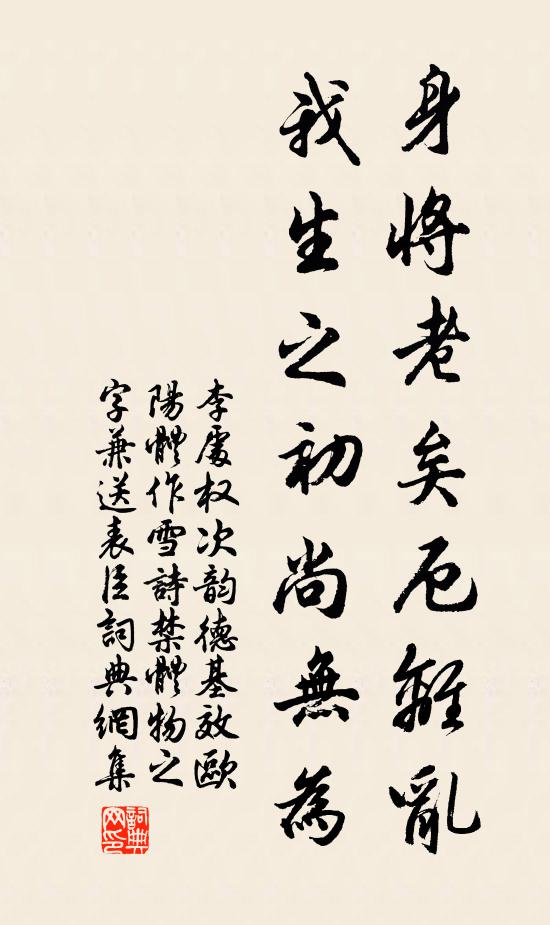 身將老矣厄離亂
我生之初尚無為
李處权次韵德基效歐
陽體作雪詩禁體物之
字兼送表臣詞典網集
詞典網印